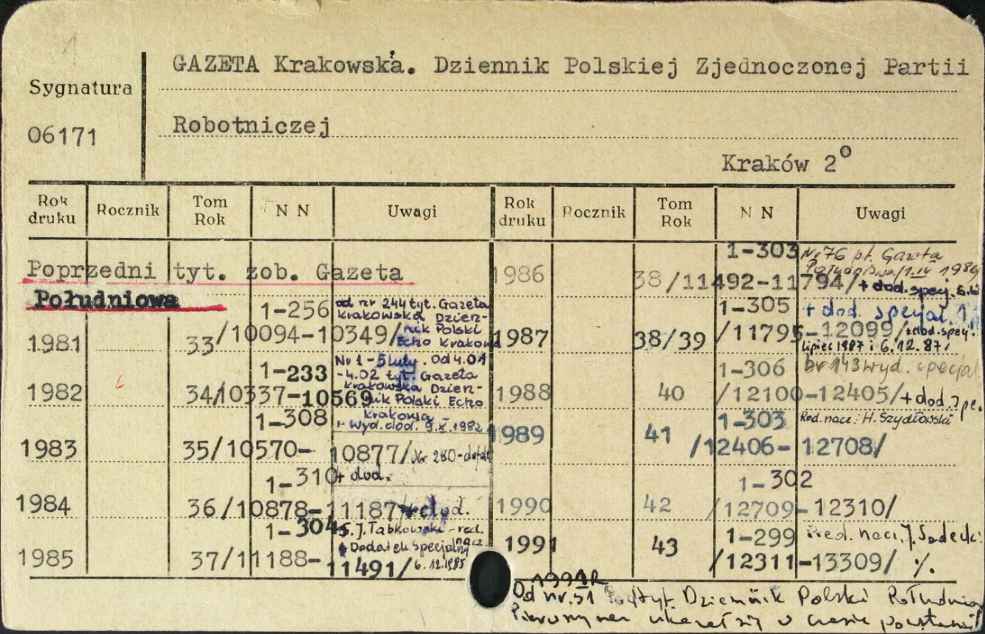 GAZETA Krakowska. Dziennik Polskiej Zjednoczonej Partii
Sygnatura
06171
Robotniczej
Kraków 2°
Rok druku Rocznik Tom Rok N N Uwagi Rok druku Rocznik Tom Rok N N Uwagi
Poprzedni tyt. zob. Gazeta
Południowa
1-256 od nr 244 tyt. Gazeta
krakowska Dzien-
1981 33/10094-10349/ nik Polski
Echo Krakowa
1-233 Nr 1-5 luty. Od 4.01
-4.02 tyt. Gazeta
krakowska Dzien-
1982 34/10337-10569 nik Polski Echo
krakowa -
1-308 Wyd. dod. 9.X.1982
1983 35/10570-10877/ Nr 280-defekt
1-310 + dod.
1984 36/10878-11187 + dod.
1-304 S. J. Tabkowski - red. nacz.
+ Dodatek specjalny
1985 37/11188-11491/ 6.12.1985
1-303 Nr 76 pt. Gazeta
1986 38/11492-11794/ + dod. spec.
1-305 + dod. specjal.
1987 38/39 /11795-12099/
lipiec 1987 i 6.12.87r
1-306 nr 143 wyd. specjal
1988 40 /12100-12405/ + dod. spe.
1-303 Red. nacz. H. Szydłowski
1989 41 /12406-12708/
1-302
1990 42 /12709-12310/
1-299 Red. nacz. J. Sadecki
1991 43 /12311-13309/ %.
1991R
Od nr. 51 tyt. Dziennik Polski Południo
Pierwszy ukazał się w czasie